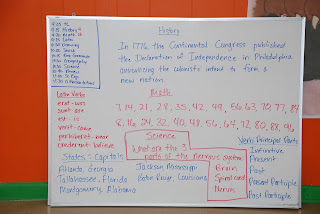 History
In 1776, the Continental Congress published
the Declaration of Independence in Philadelphia
announcing the colonists' intent to form a
new nation.
Math
7, 14, 21, 28, 35, 42, 49, 56, 63, 70, 77, 84
8, 16, 24, 32, 40, 48, 56, 64, 72, 80, 88, 96
Latin Verbs
erat-was
sunt-are
est-is
Science
What are the 3
parts of the nervous system
Brain
Spinal cord
Nerves
Verb Principal Parts
Infinitive
Present
Past
Present Participle
Past Participle
States - Capitals
Atlanta, Georgia
Tallahassee, Florida
Montgomery, Alabama
Jackson, Mississippi
Baton Rouge, Louisiana